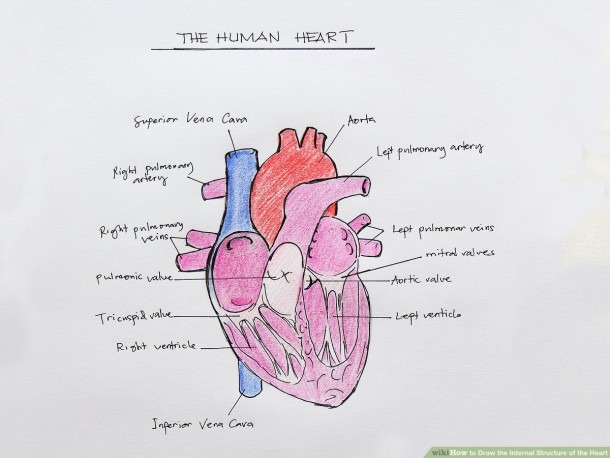 THE HUMAN HEART
Superior Vena Cava
Aorta
Left pulmonary artery
Right pulmonary
artery
Right pulmonary
veins
Left pulmonar veins
mitral valves
pulmonic value
Aortic valve
Tricuspid value
Left venticle
Right ventricle
Inferior Vena Cava
wikiHow to Draw the Internal Structure of the Heart